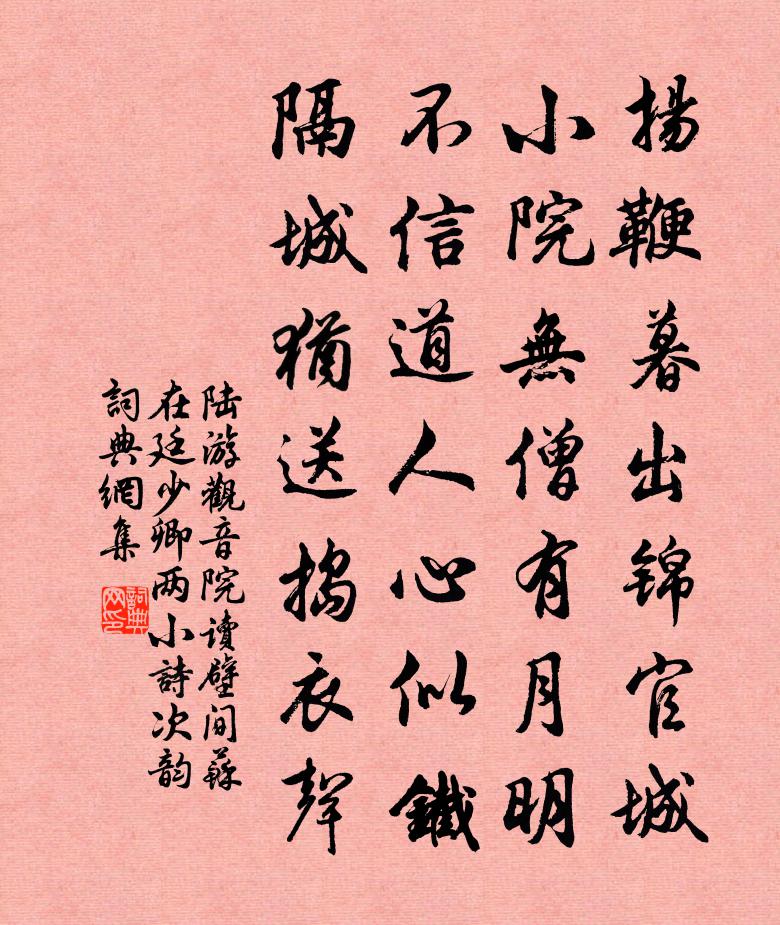 揚鞭暮出錦官城
小院無僧有月明
不信道人心似鐵
隔城猶送搗衣聲
陆游觀音院读壁间蘇
在廷少卿两小詩次韵
詞典網集
詞典网印